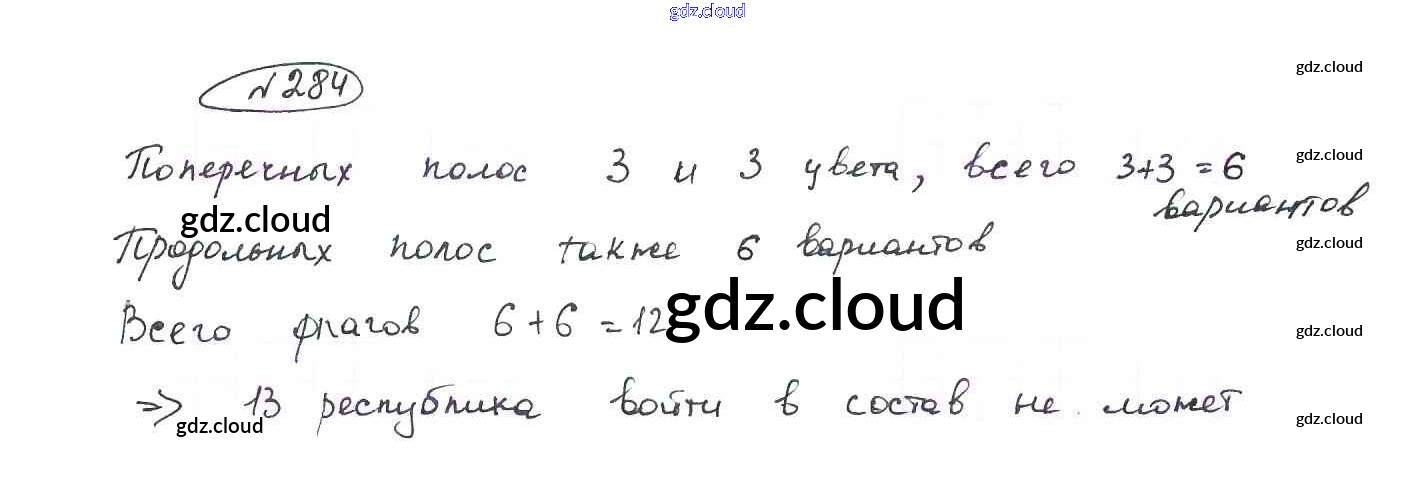 gdz.cloud
№284
gdz.cloud
Поперечных полос 3 и 3 цвета, всего 3+3=6
gdz.cloud
вариантов
gdz.cloud
Продольных полос также 6 вариантов
gdz.cloud
Всего флагов 6+6=12
gdz.cloud
gdz.cloud
=> 13 республика войти в состав не может
gdz.cloud
gdz.cloud